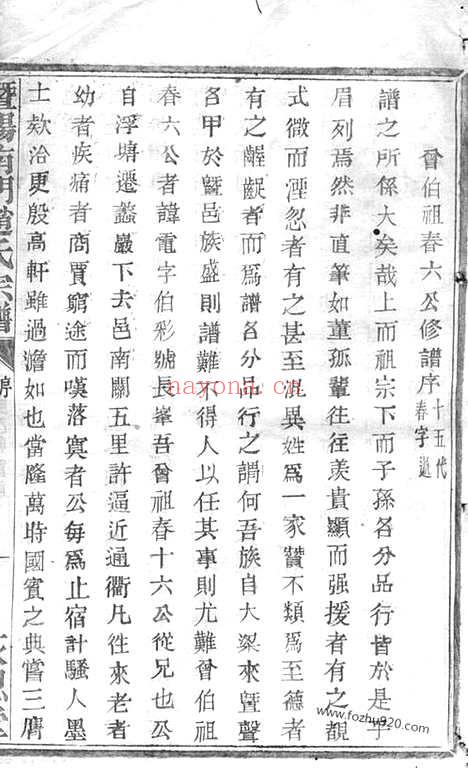 曾伯祖春六公修譜序 十五代
春字遜
譜之所係大矣哉上而祖宗下而子孫各分品行皆於是乎
眉列焉然非直筆如董孤輩往往羨貴顯而强援者有之覩
式微而湮忽者有之甚至毘異姓爲一家贊不類爲至德者
有之齷齪者而爲譜名分品行之謂何吾族自大梁來曁聲
名甲於曁邑族盛則譜難得人以任其事則尤難曾伯祖
春六公者諱電字伯彩號長峯吾曾祖春十六公從兄也公
自浮塘遷蠡巖下去邑南關五里許逼近通衢凡徃來老者
幼者疾痛者商賈窮途而嘆落寞者公每爲止宿計騷人墨
士欵洽更殷高軒雖過澹如也當隆萬時國賓之典嘗三膺
曁陽南門趙氏宗譜
序
一
hayona.cn
www.fozhu920.com